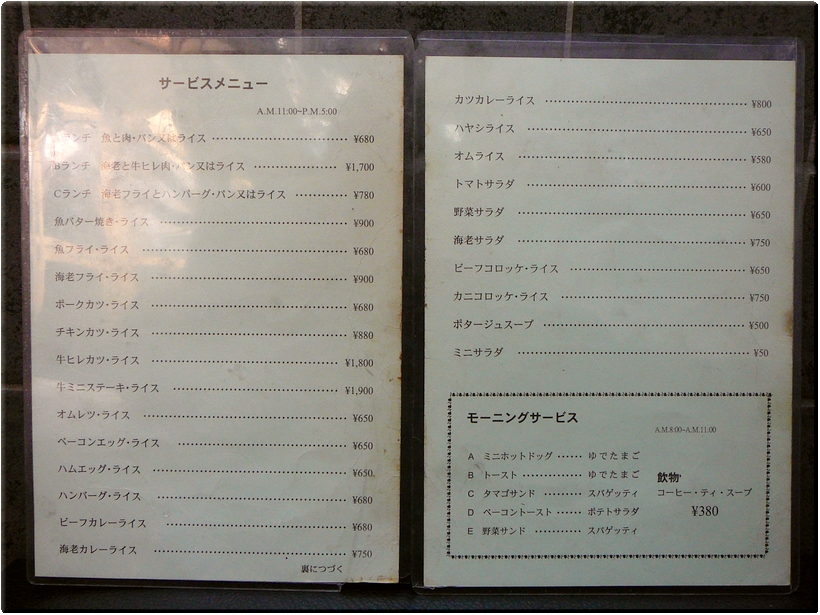 サービスメニュー
A.M.11:00~P.M.5:00
ランチ 魚と肉・パン又はライス ¥680
Bランチ 海老と牛ヒレ肉・パン又はライス ¥1,700
Cランチ 海老フライとハンバーグ・パン又はライス ¥780
魚バター焼き・ライス ¥900
魚フライ・ライス ¥680
海老フライ・ライス ¥900
ポークカツ・ライス ¥680
チキンカツ・ライス ¥880
牛ヒレカツ・ライス ¥1,800
牛ミニステーキ・ライス ¥1,900
オムレツ・ライス ¥650
ベーコンエッグ・ライス ¥650
ハムエッグ・ライス ¥650
ハンバーグ・ライス ¥680
ビーフカレーライス ¥680
海老カレーライス ¥750
裏につづく
カツカレーライス ¥800
ハヤシライス ¥650
オムライス ¥580
トマトサラダ ¥600
野菜サラダ ¥650
海老サラダ ¥750
ビーフコロッケ・ライス ¥650
カニコロッケ・ライス ¥750
ポタージュスープ ¥500
ミニサラダ ¥50
モーニングサービス
A.M.8:00~A.M.11:00
A ミニホットドッグ …… ゆでたまご
B トースト …… ゆでたまご
C タマゴサンド …… スパゲッティ
D ベーコントースト …… ポテトサラダ
E 野菜サンド …… スパゲッティ
飲物
コーヒー・ティ・スープ
¥380